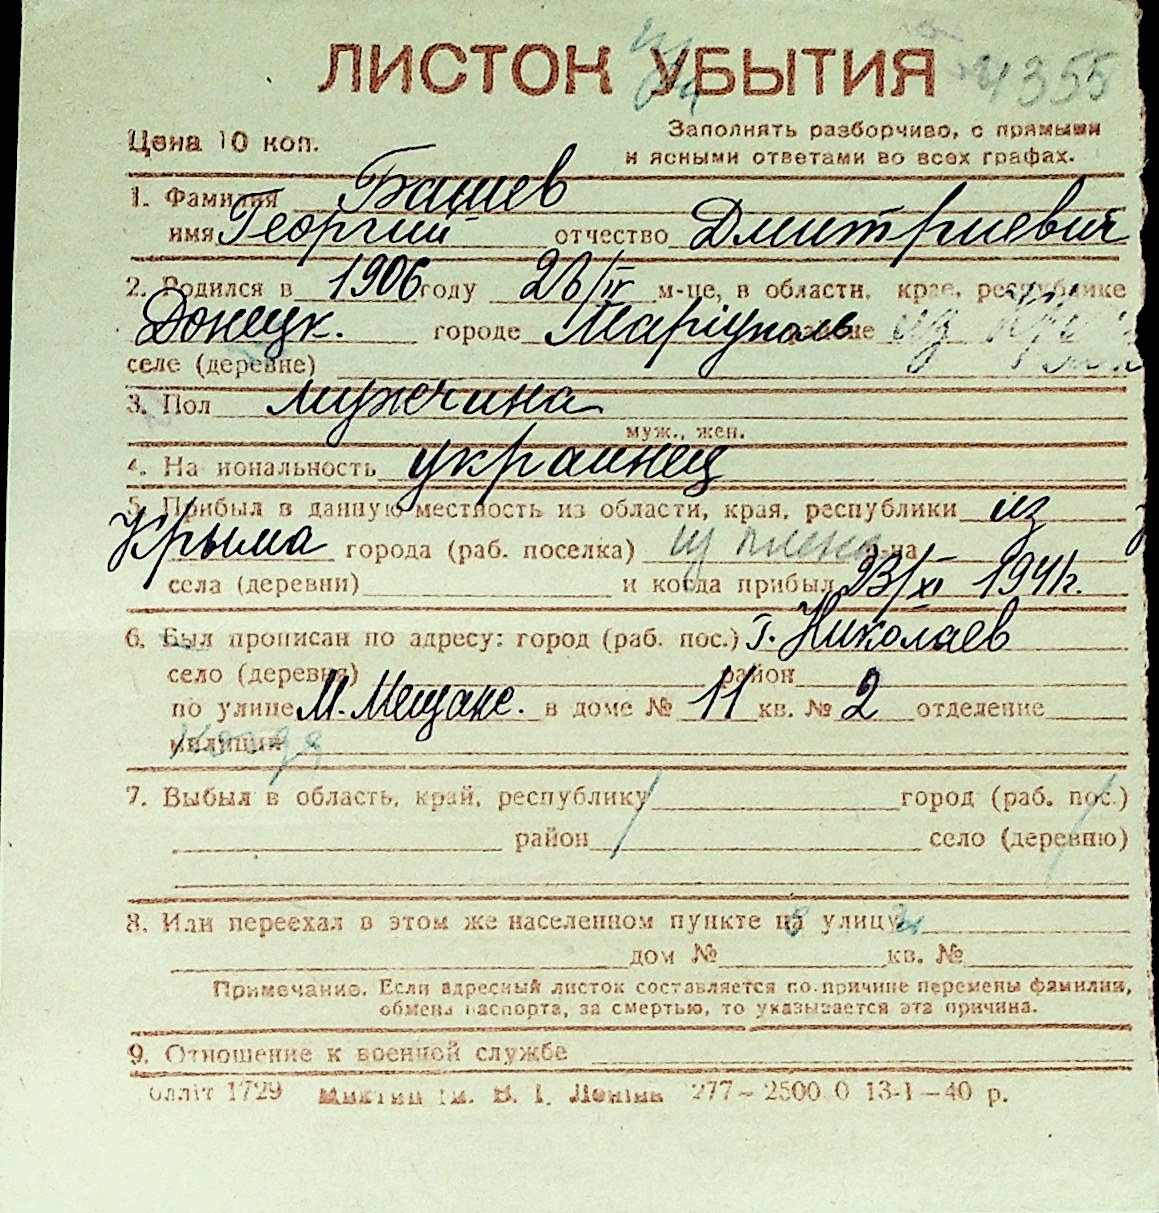 ЛИСТОК УБЫТИЯ 4355
Цена 10 коп.
Заполнять разборчиво, с прямыми
и ясными ответами во всех графах.
1. Фамилия Башев
имя Георгий отчество Дмитриевич
2. Родился в 1906 году 26/IV м-це, в области, крае, республике
Донецк. городе Маріуполь районе из
селе (деревне)
3. Пол мужчина
муж., жен.
4. На иональность украинец
5. Прибыл в данную местность из области, края, республики из
Крыма города (раб. поселка) из плена р-на
села (деревни) и когда прибыл 23/XI 1941г.
6. Был прописан по адресу: город (раб. пос.) г. Николаев
село (деревня) район
по улице М. Мещанс. в доме № 11 кв. № 2 отделение
милиции
7. Выбыл в область, край, республику город (раб. пос.)
район село (деревню)
8. Или переехал в этом же населенном пункте на улицу
дом № кв. №
Примечание. Если адресный листок составляется по причине перемены фамилии,
обмена паспорта, за смертью, то указывается эта причина.
9. Отношение к военной службе
олліт 1729 ім. В. І. Леніна 277—2500 0 13-I—40 р.